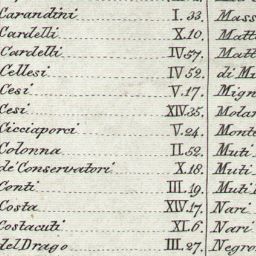 Carandini I. 33. Mass
Cardelli X. 10. Matt
Cardelli IV. 57. Matt
Cellesi IV 52. di Mi
Cesi V. 17. Mign
Cesi XIV 35. Molar
Cicciaporci V. 24. Mont
Colonna II. 52. Muti
de'Conservatori X. 18. Muti
Conti III. 19. Muti
Costa XIV. 17. Nari
Costacuti XI. 6. Nari
del Drago III. 27. Negro